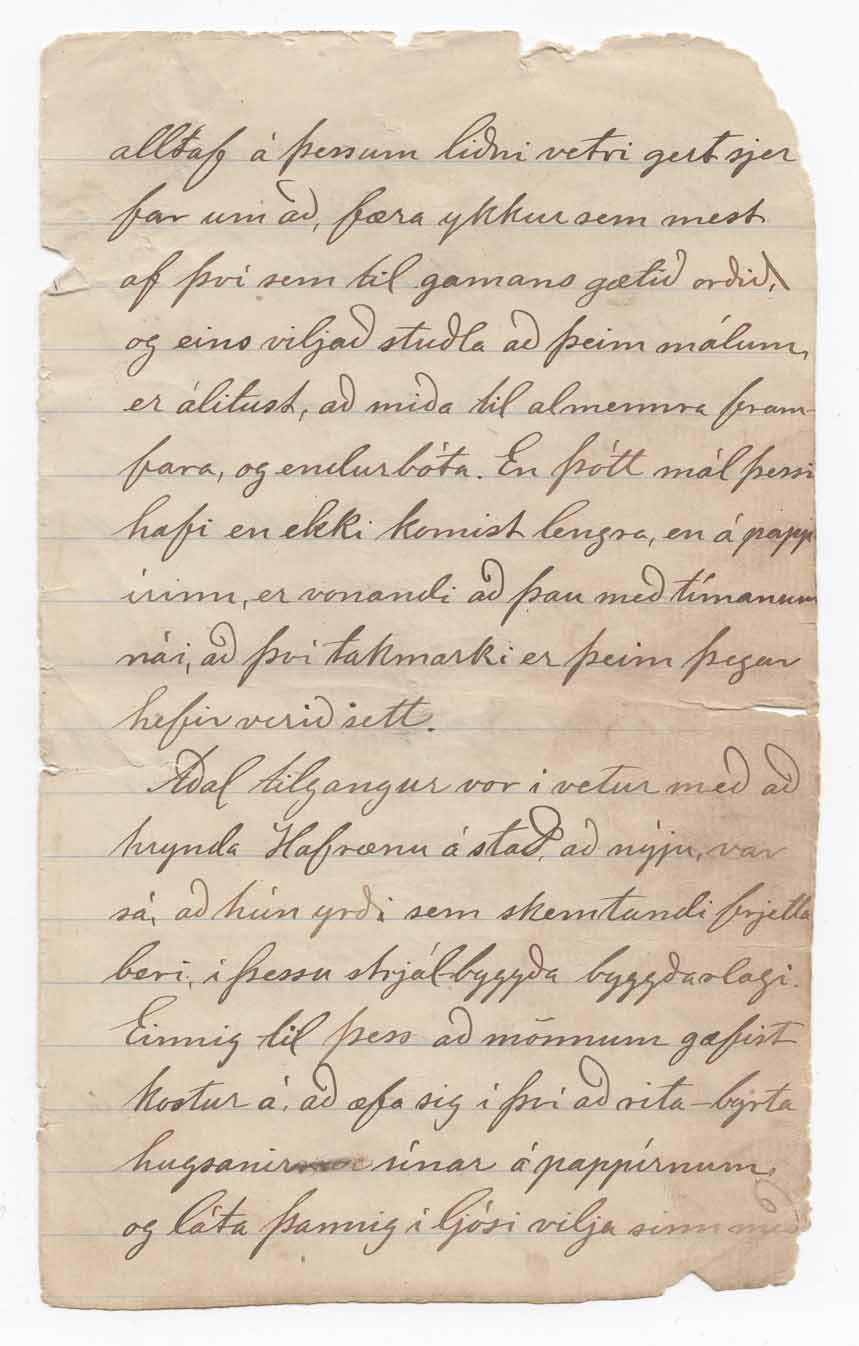 alltaf á þessum liðni vetri gert sjer
far um að, færa ykkur sem mest
af því sem til gamans gætið orðið,
og eins viljað stuðla að þeim málum,
er álitust, að miða til almennra fram-
fara, og endurbóta. En þótt mál þessi
hafi en ekki komist lengra, en á papp
írinn, er vonandi að þau með tímanum
nái, að því takmarki er þeim þegar
hefir verið sett.
Aðal tilgangur vor i vetur með að
hrynda Hafrænu á stað, að nýju, var
sá, að hún yrði sem skemtandi frjetta
beri, i þessu strjál-byggða byggðarlagi.
Einnig til þess að mönnum gæfist
kostur á, að æfa sig í því að rita-byrta
hugsanir sínar á pappírnum,
og láta þannig í ljósi vilja sinn með